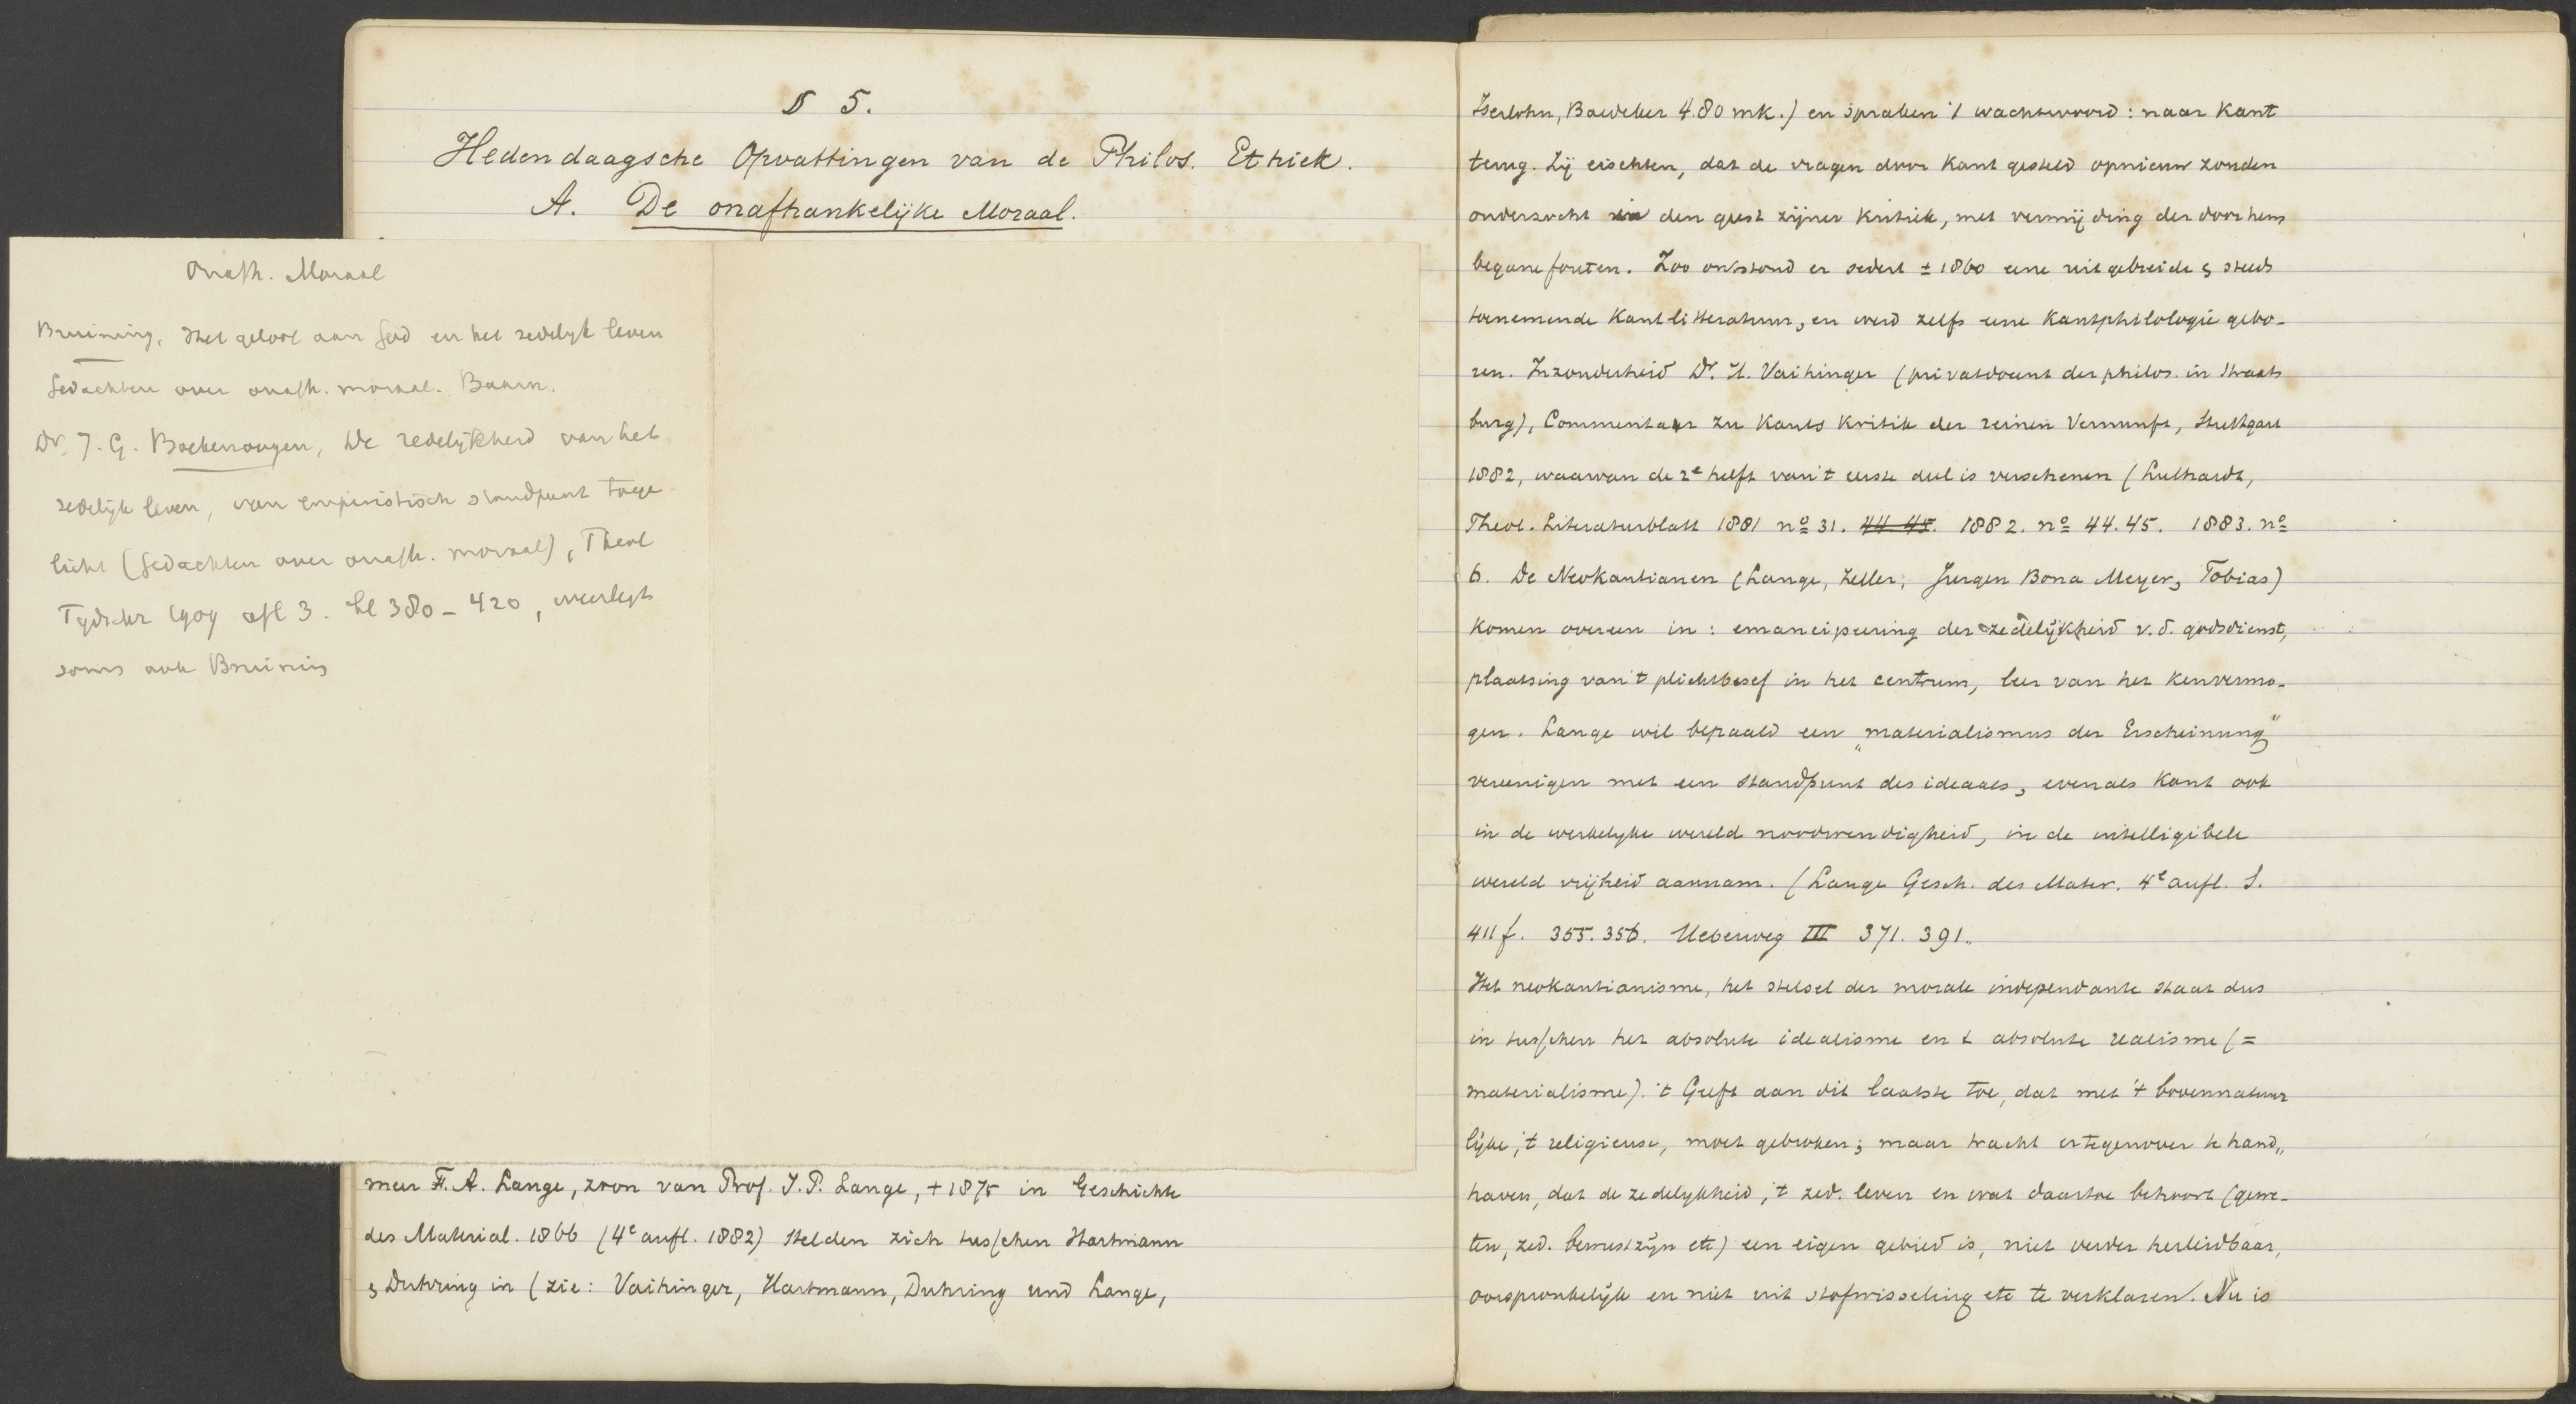 § 5.
Hedendaagsche Opvattingen van de Philos. Ethiek.
A. De onafhankelijke Moraal.
Onafh. Moraal
Bruining, Het geloof aan God en het zedelyk leven
Gedachten over onafh. moraal. Baarn.
Dr. J. G. Boekenoogen, De redelijkheid van het
zedelijk leven, van empiristisch standpunt toege-
licht (Gedachten over onafh. moraal), Theol
Tydschr 1909 afl 3. bl 380-420, weerlegt
soms ook Bruining
meer F. A. Lange, zoon van Prof. J. P. Lange, + 1875 in Geschichte
des Material. 1866 (4e aufl. 1882) stelden zich tusschen Hartmann
& Duhring in (zie: Vaihinger, Hartmann, Duhring und Lange,
Iserlohn, Baedeker 4.80 mk.) en spraken 't wachtwoord: naar Kant
terug. Zij eischten, dat de vragen door Kant gesteld opnieuw zouden
onderzocht in den geest zijner Kritiek, met vermijding der door hem
begane fouten. Zoo ontstond er sedert ± 1860 eene uitgebreide & steeds
toenemende Kantlitteratuur, en werd zelfs eene Kantphilologie gebo-
ren. Inzonderheid Dr. H. Vaihinger (privatdocent der philos. in Straats
burg), Commentar zu Kants Kritik der reinen Vernunft, Stuttgart
1882, waarvan de 2e helft van 't eerste deel is verschenen (Luthardt,
Theol. Literaturblatt 1881 no 31. 44 45. 1882. no 44.45. 1883. no
6. De Neokantianen (Lange, Zeller, Jurgen Bona Meyer, Tobias)
komen overeen in: emancipeering der zedelijkheid v.d. godsdienst,
plaatsing van 't plichtbesef in het centrum, leer van het kenvermo-
gen. Lange wil bepaald een „materialismus der Erscheinung"
vereenigen met een standpunt des ideaals, evenals Kant ook
in de werkelyke wereld noodwendigheid, in de intelligibele
wereld vrijheid aannam. (Lange Gesch. des Mater. 4e aufl. S.
411 f. 355. 356. Ueberweg III 371. 391.
Het neokantianisme, het stelsel der morale independante staat dus
in tusschen het absolute idealisme en t absolute realisme (=
materialisme). 't Geeft aan dit laatste toe, dat met 't bovennatuur
lijke, 't religieuse, moet gebroken; maar tracht ertegenover te hand„
haven, dat de zedelykheid, 't zed. leven en wat daartoe behoort (gewe-
ten, zed. bewustzijn etc) een eigen gebied is, niet verder herleidbaar,
oorspronkelijk en niet uit stofwisseling etc te verklaren. Nu is